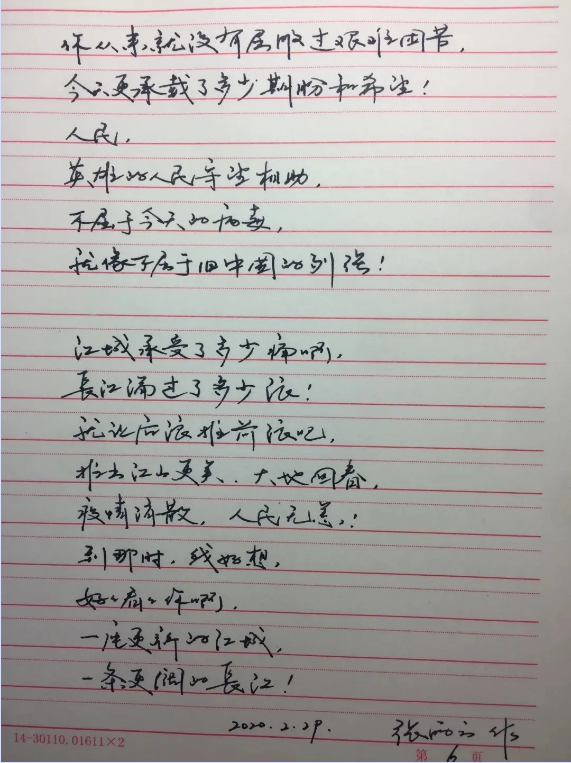 你从来就没有屈服过艰难困苦,
今天更承载了多少期盼和希望!
人民,
英雄的人民守望相助,
不屈于今天的病毒,
就像不屈于旧中国的列强!
江城承受了多少痛啊,
長江涌过了多少浪!
就让后浪推前浪吧,
推出江山更美、大地回春,
疫情消散,人民无恙!
到那时,我好想,
好好看看你啊,
一座更新的江城,
一条更阔的長江!
2020.2.29.
张 作
14-30110.01611×2
第 6 页